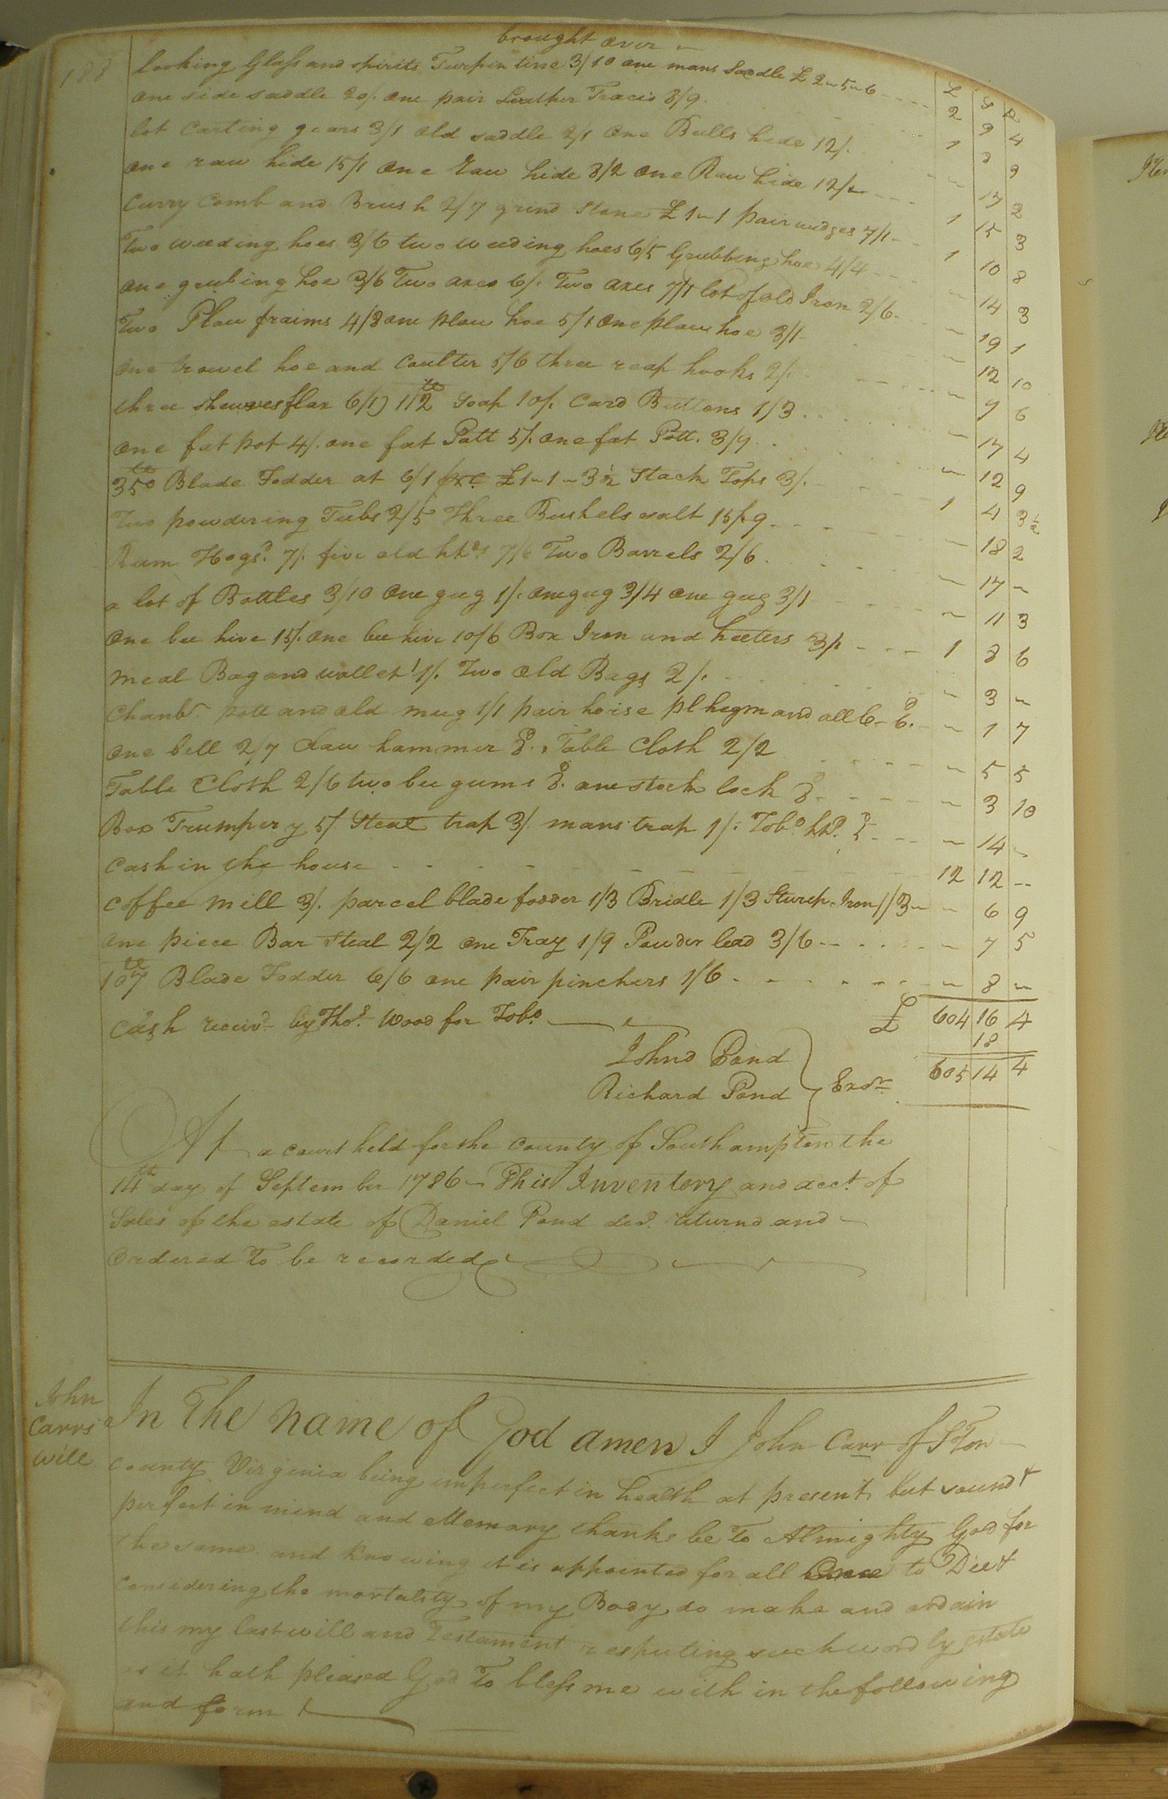 188
brought over
£ S D
Looking Glass and spirits Turpin tine 3/10 one mans Saddle £ 2-5-6 - - - - 2 9 4
one side saddle 20/. one pair Leather Traces 8/9 1 8 9
lot Carting gears 3/1 old saddle 2/1 one Bulls hide 12/. - 17 2
one raw hide 15/1 One Raw hide 8/2 one Raw hide 12/ - - - 1 15 3
Curry Comb and Brush 2/7 grind Stone £ 1-1 pair wedges 7/1 - - 1 10 8
Two weeding hoes 3/6 two weeding hoes 6/5 Grubbing hoe 4/4 - - - 14 3
one grubing hoe 3/6 Two axes 6/. Two axes 7/1 lot of old Iron 2/6 - - 19 1
Two Plow fraims 4/8 one plow hoe 5/1 one plow hoe 3/1 - 12 10
one trowel hoe and Coulter 5/6 three reap hooks 2/. - - - 7 6
three sheaves flax 6/1 11 2 Soap 10/. Card Buttons 1/3 - 17 4
one fat pot 4/. one fat Pott 5/. one fat Pott. 3/9 - 12 9
350 Blade Fodder at 6/1 £1-1-3½ Stack Tops 3/. 1 4 3½
Two powdering Tubs 2/5 three Bushels salt 15/.9 - - - - 18 2
Rum Hogsd. 7/. five old hhds 7/6 Two Barrels 2/6 - 17 -
a lot of Bottles 3/10 One gug 1/. one gug 3/4 one gug 3/1 - 11 3
One bee hive 15/. one bee hive 10/6 Box Iron and heeters 3/. - - - 1 8 6
meal Bag and wallet 1/. Two old Bags 2/. - 3 -
Chambr. pott and old mug 1/1 pair hoise phlegm and all 6. - 1 7
one bell 2/7 claw hammer 8d., Table Cloth 2/2 - 5 5
Table Cloth 2/6 two bee gums 8d. one stock lock 8d. - 3 10
Box Trumpery 5/. Steal trap 3/. mans trap 1/. Tobo. hhd. 5/ - 14 -
Cash in the house - - - - 12 12 -
Coffee mill 3/. parcel blade fodder 1/3 Bridle 1/3 Sturrh. Iron 1/3 - - 6 9
one piece Bar Steal 2/2 one Tray 1/9 Powder lead 3/6 - - - 7 5
107 Blade Fodder 6/6 one pair pinchers 1/6 - - - - 8 -
£ 604 16 4
Cash receivd. by Thos. Wood for Tobo. 18
605 14 4
Johno Pond
Richard Pond } Exors
At a court held for the county of Southampton the
14th day of September 1786 - This Inventory and acct. of
Sales of the estate of Daniel Pond decd. returnd and
Ordered To be recorded
John
Carrs
will
In The name of God amen I John Carr of S:Ton
County Virginia being imperfect in health at present, but sound &
perfect in mind and Memory thanks be To Almighty God for
the same. and knowing it is appointed for all once to Die &
considering the mortality of my Body do make and ordain
this my last will and Testament respecting such wordly estate
as it hath pleased God To bless me with in the following
and form